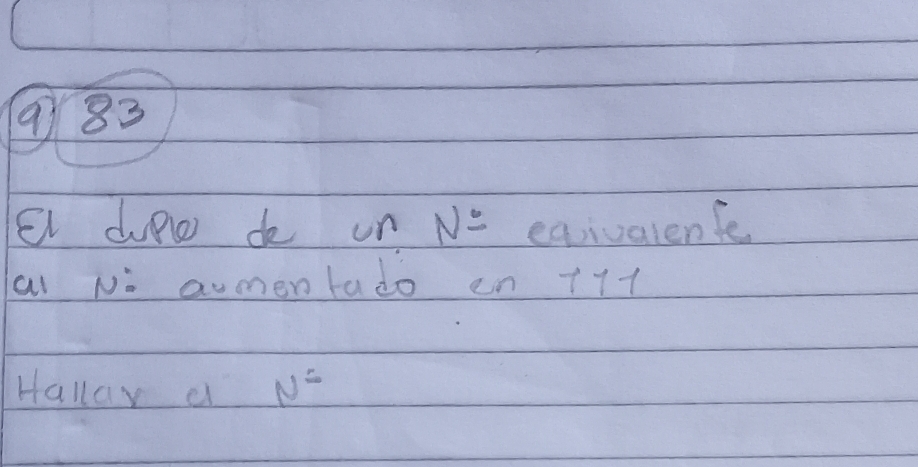 9) 83
El duplo de un Nº equivalente
al Nº aumentado en 111
Hallar el Nº